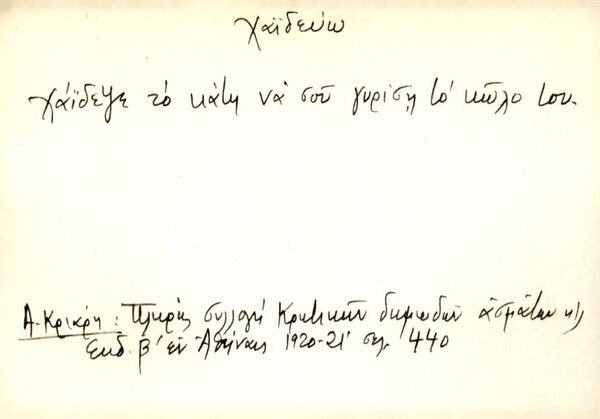 Χαϊδεύω
Χάϊδεψε τὸ κάτη νὰ σοῦ γυρίσῃ τὸ κῶλο του.
Α. Κριάρη: Πλήρης συλλογή Κρητικῶν δημωδῶν ἀσμάτων κἱλ
Εκδ. β' εν Ἀθήναις 1920-21 σελ. 440